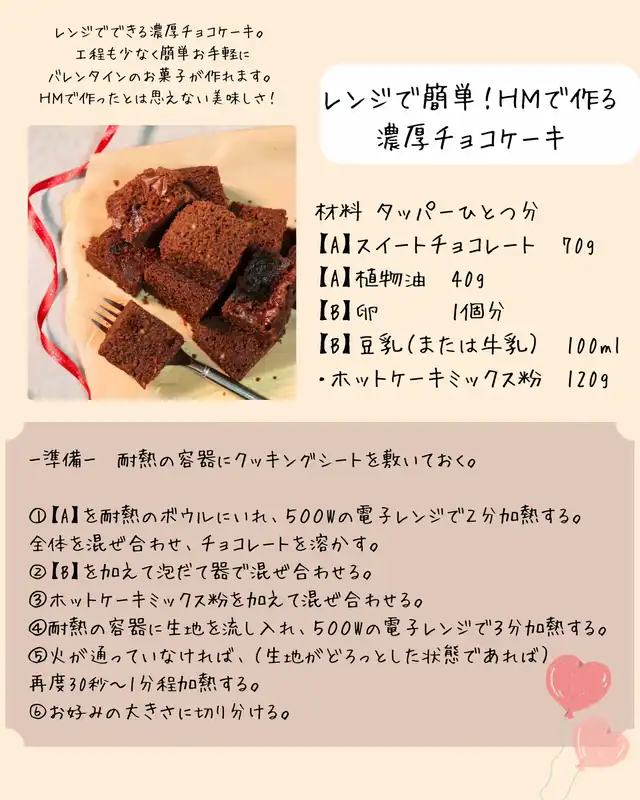 レンジでできる濃厚チョコケーキ。
工程も少なく簡単お手軽に
バレンタインのお菓子が作れます。
HMで作ったとは思えない美味しさ!
レンジで簡単!HMで作る
濃厚チョコケーキ
材料 タッパーひとつ分
【A】スイートチョコレート 70g
【A】植物油 40g
【B】卵 1個分
【B】豆乳(または牛乳) 100ml
・ホットケーキミックス粉 120g
ー準備ー 耐熱の容器にクッキングシートを敷いておく。
①【A】を耐熱のボウルにいれ、500Wの電子レンジで2分加熱する。
全体を混ぜ合わせ、チョコレートを溶かす。
②【B】を加えて泡だて器で混ぜ合わせる。
③ホットケーキミックス粉を加えて混ぜ合わせる。
④耐熱の容器に生地を流し入れ、500Wの電子レンジで3分加熱する。
⑤火が通っていなければ、(生地がどろっとした状態であれば)
再度30秒〜1分程加熱する。
⑥お好みの大きさに切り分ける。